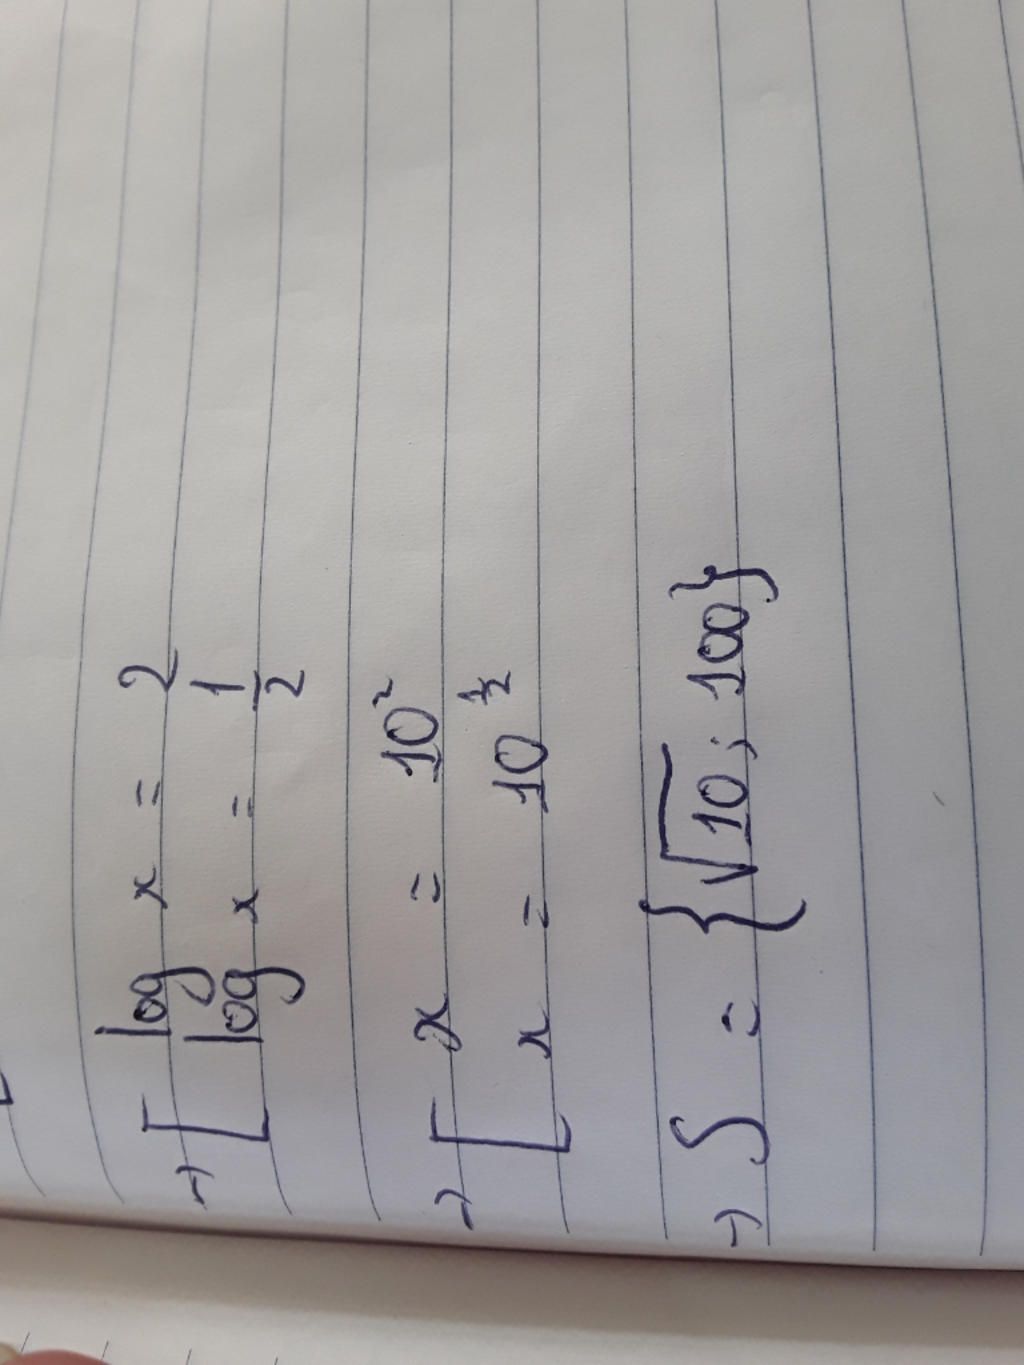 → [ log x = 2
log x = 1/2
→ [ x = 10²
x = 10^½
→ S = {√10; 100}